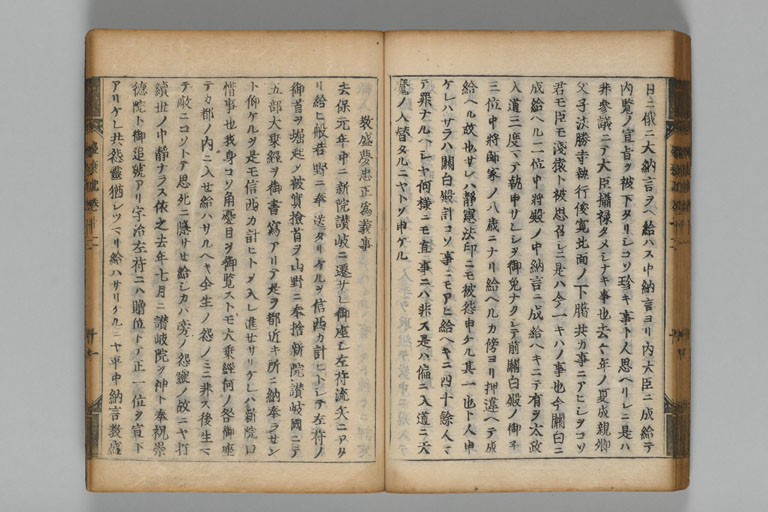 日ニ俄ニ大納言ヲヘ給ハス中納言ヨリ内大臣ニ成給テ
内覧ノ宣旨ヲ被下タリシコソ珍キ事ト人思ヘリシニ是ハ
非参議ニテ大臣摂禄タメシナキ事也去々年ノ夏成親卿
父子法勝寺執行俊寛北面ノ下臈共カ事ニアヒシヲコソ
君モ臣モ浅猿ト被思召シニ是ハ今一キハノ事也今関白ニ
成給ヘル二位中将殿ノ中納言ニ成給ヘキニテ有ヲ太政
入道三度マテ執申サレシヲ御免ナクシテ前関白殿ノ御子
三位中将師家ノ八歳ニナリ給ヘルカ傍ヨリ押違ヘテ成
給ヘル故也サレハ静憲法印ニモ被怨申ケル其一也ト人申
ケレハサラハ関白殿計コソ事ニモアヒ給ヘキニ四十餘人マ
テ罪ナルヘシヤ何様ニモ直事ニハ非ス是ハ偏ニ入道ニ天
魔ノ入替タルニヤトソ申ケル
教盛夢忠正為義事
去保元年中ニ新院讃岐ニ遷サレ御座シ左府流矢ニアタ
リ給ヒ般若野ニ奉送タリケルヲ信西カ計ヒトシテ左府ノ
御首ヲ堀起メ被實撿首ヲ山野ニ奉捨新院讃岐國ニテ
五部大乗経ヲ御書寫アリテ是ヲ都近キ所ニ納奉ラセン
ト仰ケルヲ是モ信西カ計ヒトメ入レ進セサリケレハ新院口
惜事也我身コソ角塵日ヲ御覧ストモ大乗経何ノ咎御座
テカ都ノ内ニ入セ給ハサルヘキ今生ノ怨ノミニ非ス後生マ
テ敵ニコソトテ思死ニ隠サセ給シカハ旁ノ怨霊ノ故ニヤ打
續世ノ中静ナラス依之去年七月ニ讃岐院ヲ神ト奉祝崇
徳院ト御追號アリ宇治左府ニハ贈位トテ正一位ヲ宣下
アリケレ共怨靈猶シツマリ給ハサリケルニヤ平中納言教盛